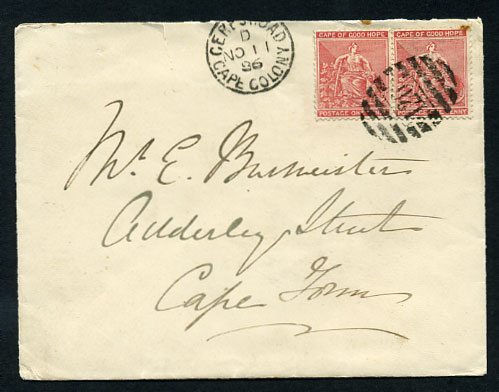 CERES ROAD
D
NO 11
86
CAPE COLONY
CAPE OF GOOD HOPE
CAPE OF GOOD HOPE
POSTAGE ONE
PENNY
Mr E. Burmeister
Adderley Street
Cape Town